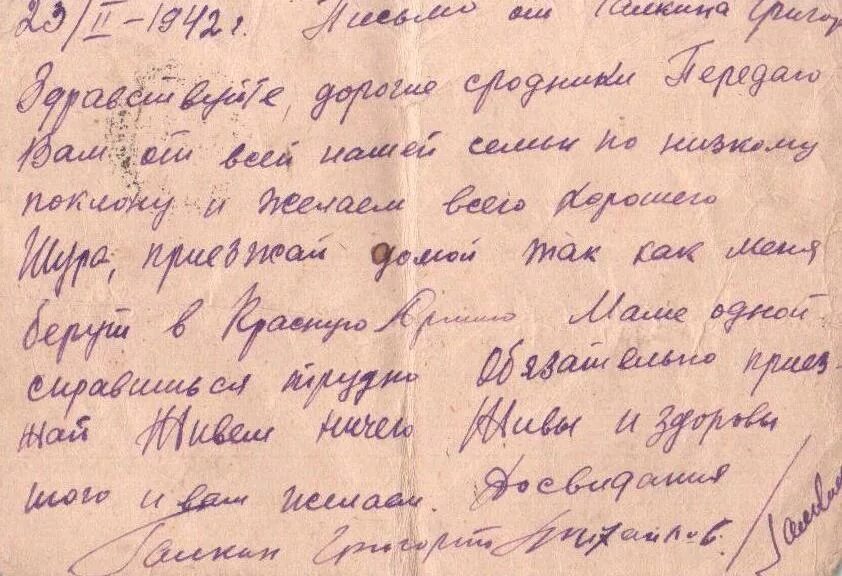 23/II-1942г. Письмо от Галкина Григор
Здравствуйте, дорогие сродники Передаю
Вам от всей нашей семьи по низкому
поклону и желаем всего хорошего
Шура, приезжай домой так как меня
берут в Красную Армию Маме одной
справишься трудно Обязательно приез-
жай Живем ничего Живы и здоровы
того и вам желаем. Досвидания
Галкин Григорий